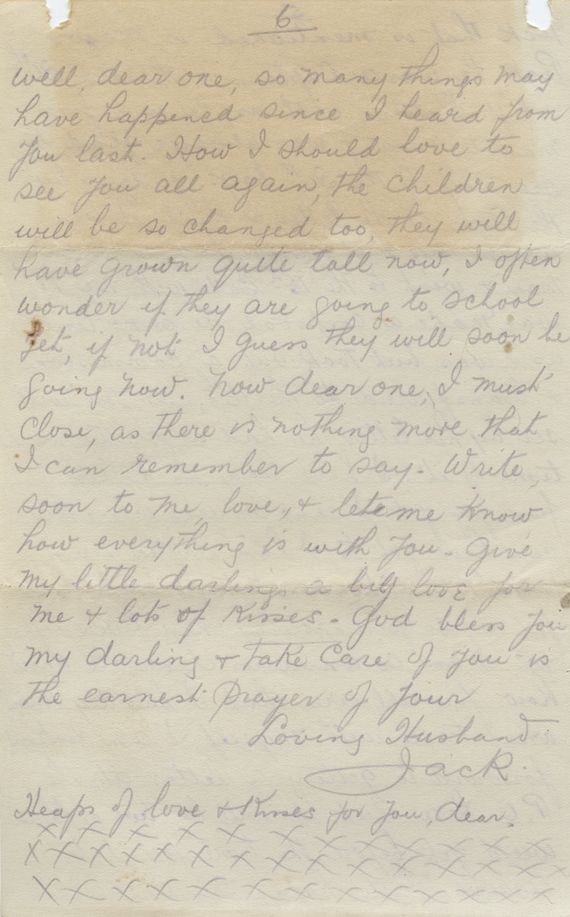 6
well, dear one, so many things may
have happened since I heard from
you last. How I should love to
see you all again, the children
will be so changed too, they will
have grown quite tall now, I often
wonder if they are going to school
yet, if not I guess they will soon be
going now. now dear one, I must
close, as there is nothing more that
I can remember to say. Write
soon to me love, & let me know
how everything is with you. Give
my little darlings a big love for
me & lots of kisses. God bless you
my darling & take care of you is
the earnest prayer of your
Loving Husband
Jack.
Heaps of love & kisses for you, dear.
X X X X X X X X X X X X
X X X X X X X X X X X X X
X X X X X X X X X X X X